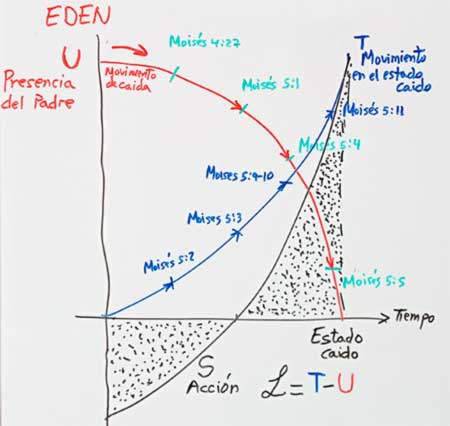 EDEN
U
Presencia
del Padre
Movimiento
de caida
Moisés 4:27
Moisés 5:1
T
Movimiento
en el estado
caido
Moisés 5:11
Moises 5:4
Moises 5:9-10
Moisés 5:3
Moisés 5:2
Moisés 5:5
Tiempo
Estado
caido
S
Acción
L=T-U